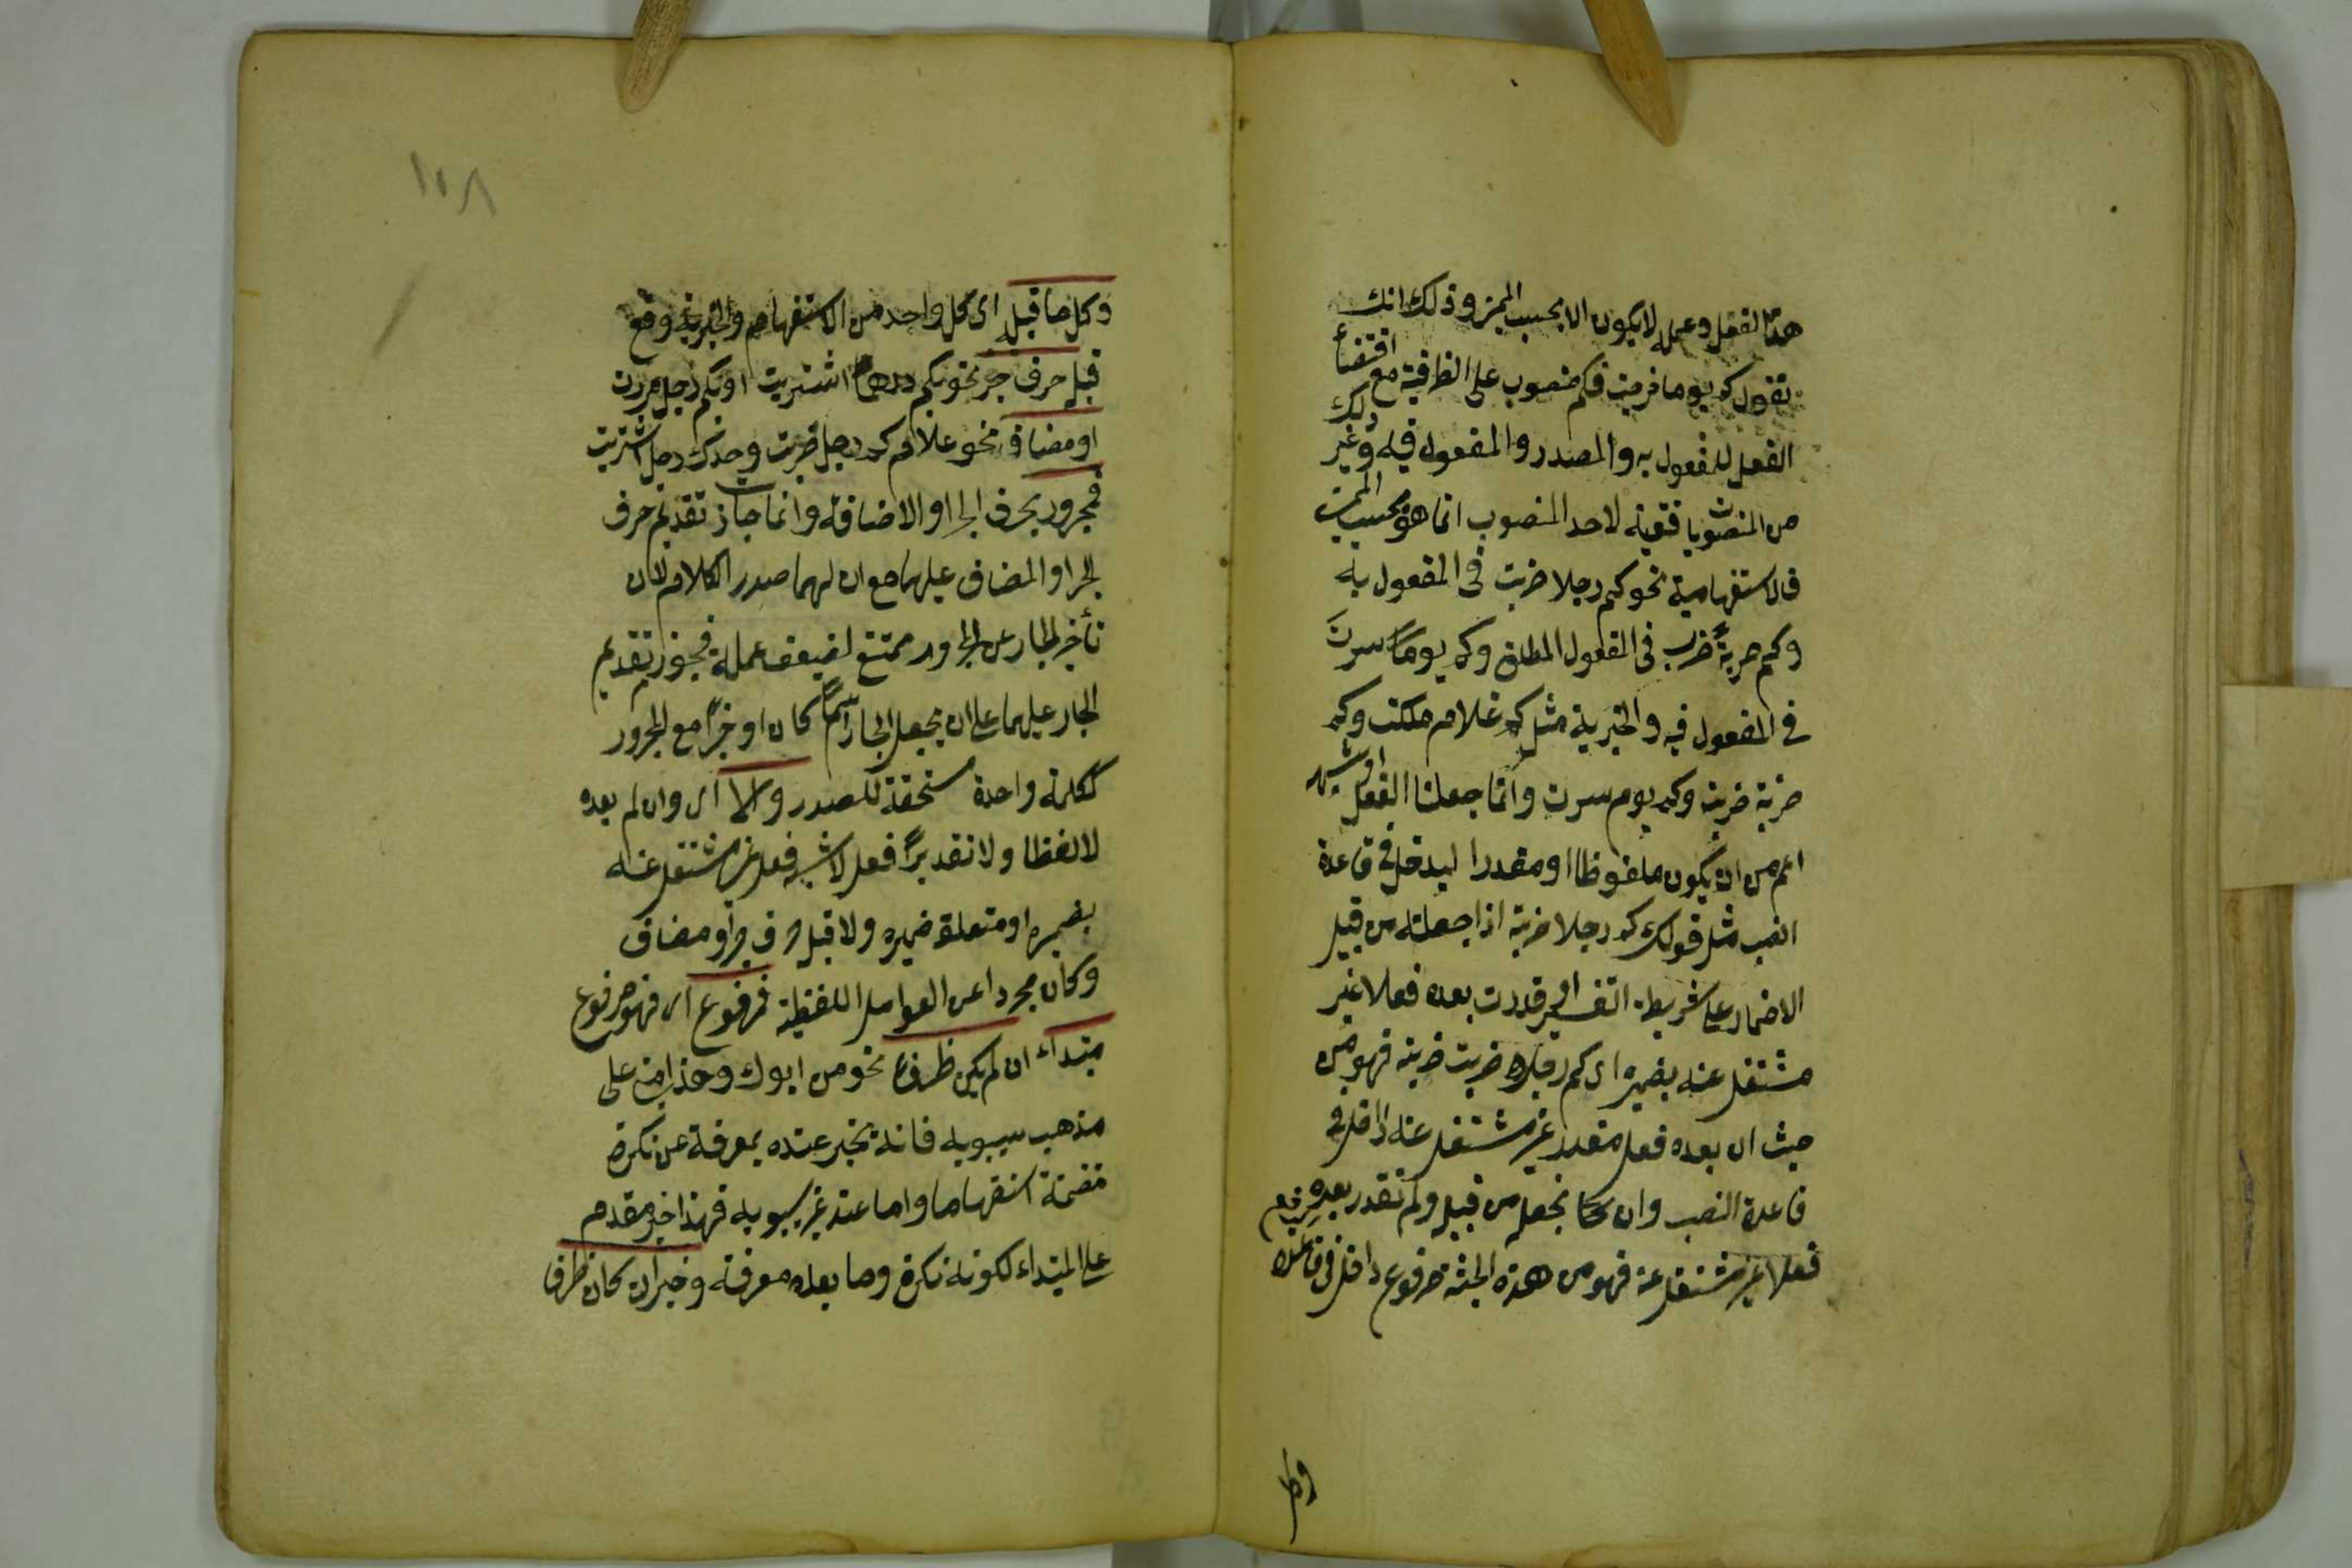 هذا الفعل وعمله لا يكون الا بحسب المميز وذلك انك
تقول كم يوما ضربت فكم منصوب على الظرفية مع اقتضاء
الفعل للمفعول به والمصدر والمفعول فيه وغير ذلك
من المنصوبات فتعينه لاحد المنصوب انما هو بحسب المميز
فالاستفهامية نحو كم رجلا ضربت في المفعول به
وكم ضربةً ضربت في المفعول المطلق وكم يوماً سرتَ
في المفعول فيه والخبرية مثل كم غلام ملكت وكم
ضربة ضربت وكم يوم سرت وانما جعلنا الفعل او شبهه
اعم من ان يكون ملفوظا او مقدرا ليدخل في قاعدة
النصب مثل قولك كم رجلا ضربته اذا جعلته من قبيل
الاضمار على شريطة التفسير وقدرت بعده فعلا غير
مشتغل عنه بضميره اى كم رجلا ضربت ضربته فهو من
حيث ان بعده فعل مقدر غير مشتغل عنه داخل في
قاعدة النصب وان لم تجعله من قبيله ولم تقدر بعده
فعلا غير مشتغل عنه فهو من هذه الحيثية مرفوع داخل في قاعدة الرفع
وكل
١٠٨
وكل ما قبله اى كل واحد من الاستفهامية والخبرية وقع
قبله حرف جر نحو بكم درهما اشتريت او بكم رجل مررت
او مضاف نحو غلام كم رجل ضربت وعبد كم رجل اشتريت
فمجرور بحرف الجر او الاضافة وانما جاز تقديم حرف
الجر او المضاف عليهما مع ان لهما صدر الكلام لان
تأخير الجار عن المجرور ممتنع لضعف عمله فجوز تقديم
الجار عليهما على ان يجعل الجار اسمًا كان او حرفًا مع المجرور
ككلمة واحدة مستحقة للصدر والا اى وان لم بعده
لا لفظا ولا تقديرًا فعل لا شبه فعل غير مشتغل عنه
بضميره او متعلق ضميره ولا قبله حرف جر او مضاف
وكان مجردا عن العوامل اللفظية فمرفوع اى فهو مرفوع
مبتداء ان لم يكن ظرفا نحو من ابوك وهذا مبني على
مذهب سيبويه فانه يخبر عنده بمعرفة عن نكرة
متضمنة استفهاما واما عند غير سيبويه فهذا خبر مقدم
على المبتداء لكونه نكرة وما بعده معرفة وخبر ان كان ظرفا